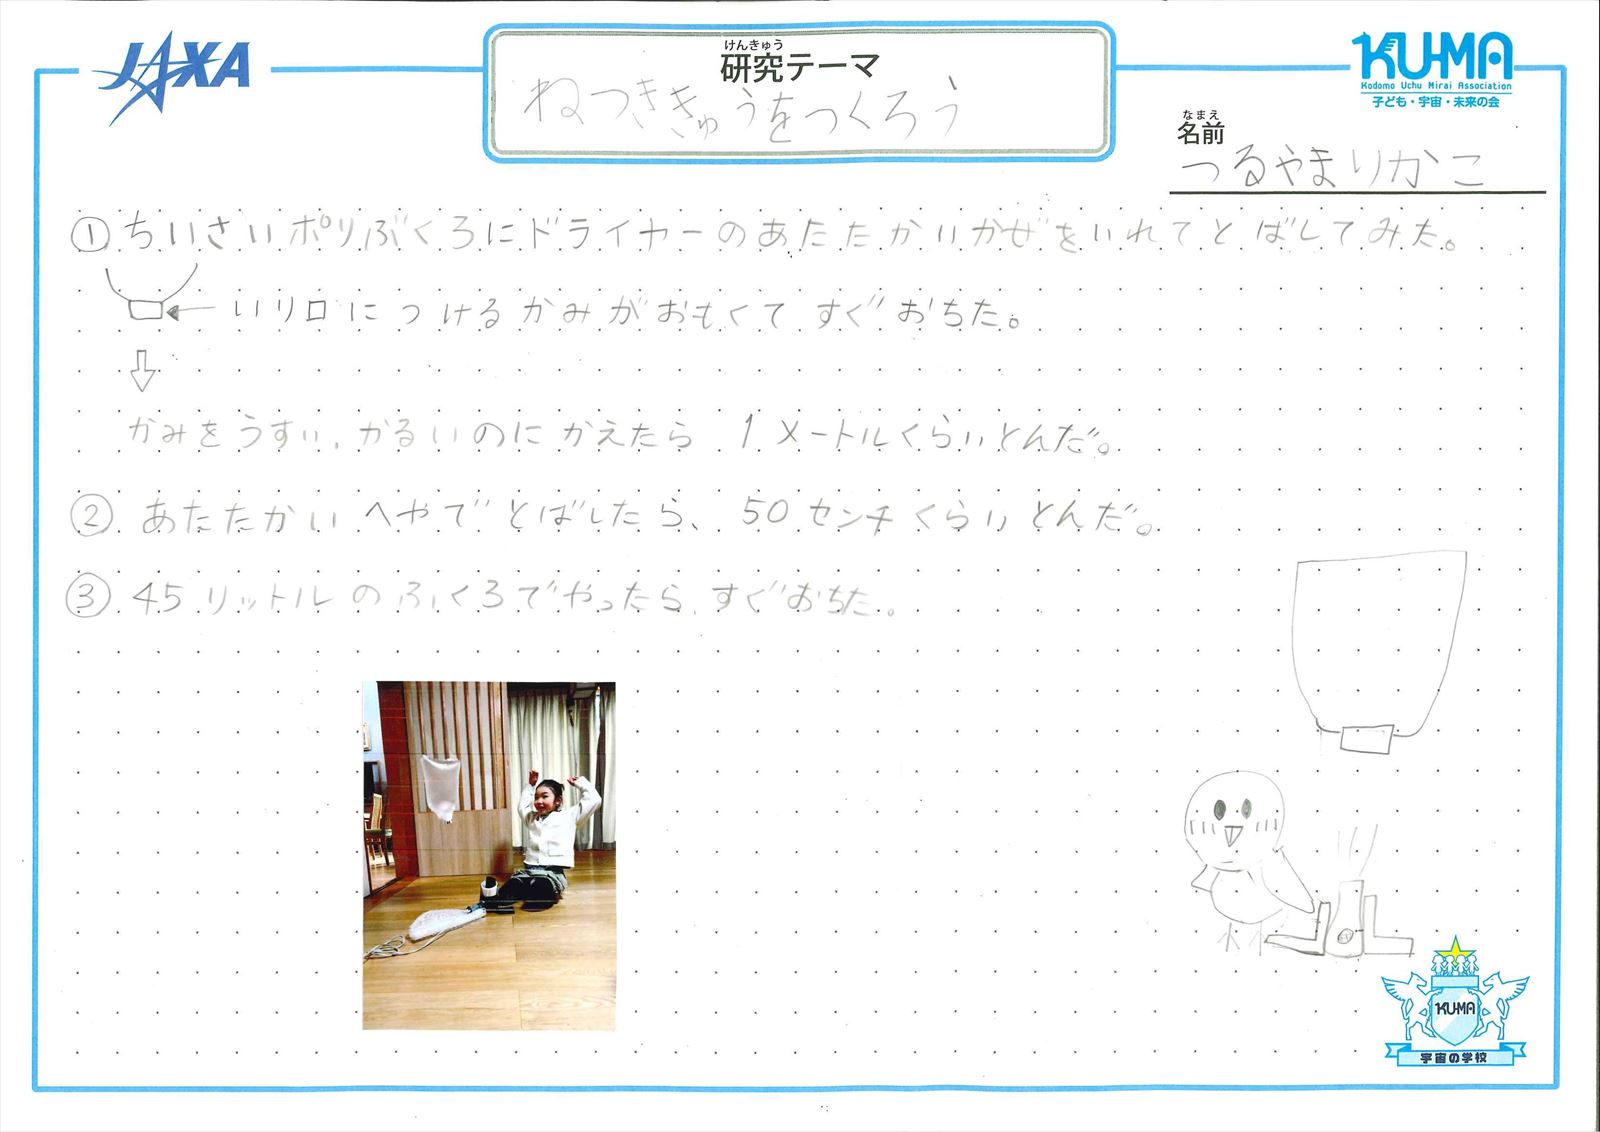 JAXA
けんきゅう
研究テーマ
ねつききゅうをつくろう
KU-MA
Kodomo Uchu Mirai Association
子ども・宇宙・未来の会
なまえ
名前
つるやまりかこ
① ちいさいポリぶくろにドライヤーのあたたかいかぜをいれてとばしてみた。
← いり口につけるかみがおもくてすぐおちた。
⇩
かみをうすい、かるいのにかえたら 1メートルくらいとんだ。
② あたたかいへやでとばしたら、50センチくらいとんだ。
③ 45リットルのふくろでやったら、すぐおちた。
KU-MA
宇宙の学校